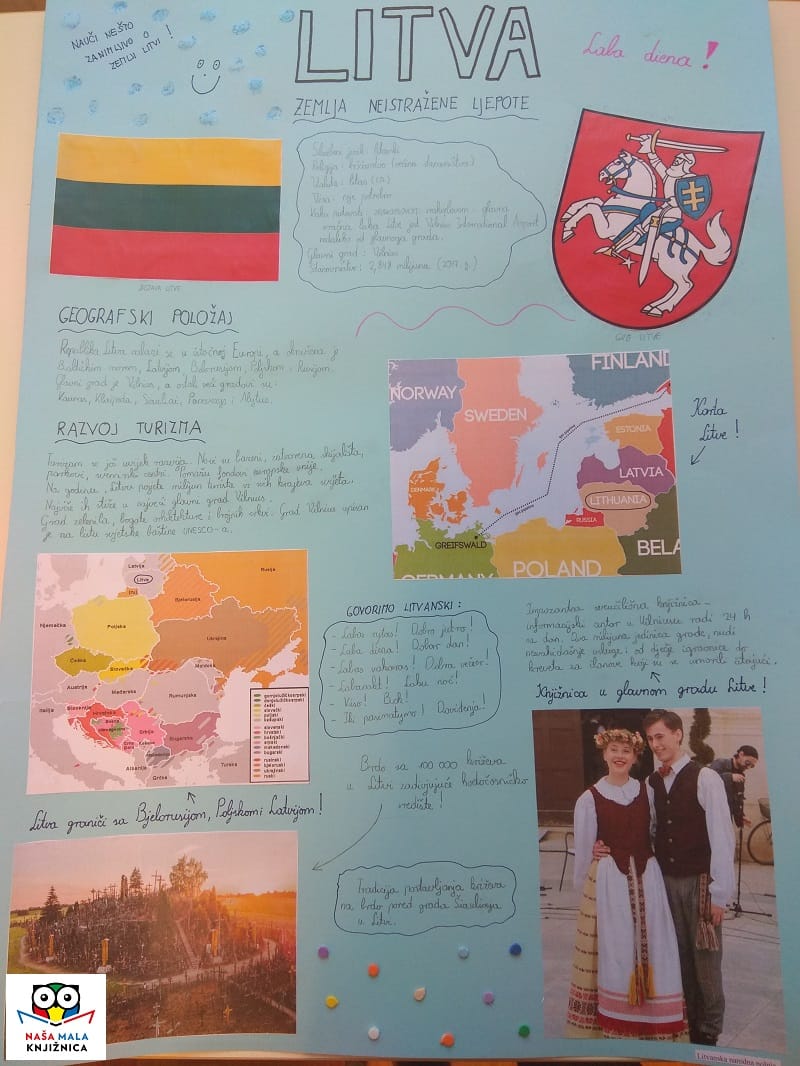 NAUČI NEŠTO
ZANIMLJIVO O
ZEMLJI LITVI!
LITVA
Laba diena!
ZEMLJA NEISTRAŽENE LJEPOTE
Službeni jezik: litavski
Religija: kršćanstvo (većina stanovništva)
Valuta: litas
Viza: nije potrebna
Kako putovati zrakoplovom - glavna
zračna luka Litve jest Vilnius International Airport
nedaleko od glavnoga grada.
Glavni grad: Vilnius
Stanovništvo: 2,848 milijuna (2017. g.)
ZASTAVA LITVE
GRB LITVE
GEOGRAFSKI POLOŽAJ
Republika Litva nalazi se u istočnoj Europi, a okružena je
Baltičkim morem, Latvijom, Bjelorusijom, Poljskom i Rusijom.
Glavni grad je Vilnius, a ostali veći gradovi su:
Kaunas, Klaipeda, Siauliai, Panevezys i Alytus.
RAZVOJ TURIZMA
Turizam se još uvijek razvija. Novi su bazeni, zatvorena skijališta,
parkovi, Pomažu fondovi europske unije.
Na godinu, Litvu posjete milijun turista iz svih krajeva svijeta.
Najviše ih stiže u najveći glavni grad Vilnius.
Grad zelenila, bogate arhitekture i brojnih crkvi. Grad Vilnius upisan
je na listu svjetske baštine UNESCO-a.
NORWAY
SWEDEN
FINLAND
ESTONIA
LATVIA
LITHUANIA
DENMARK
RUSSIA
GREIFSWALD
GERMANY
POLAND
BELA
Karta
Litve!
Latvija
Litva
Rusija
Bjelorusija
Njemačka
Poljska
Ukrajina
Češka
Slovačka
Moldavija
Austrija
Mađarska
Rumunjska
Italija
Slovenija
Hrvatska
Srbija
Bugarska
Turska
Grčka
Litva graniči sa Bjelorusijom, Poljskom i Latvijom!
GOVORIMO LITVANSKI:
- Labas rytas! Dobro jutro!
- Laba diena! Dobar dan!
- Labas vakaras! Dobra večer!
- Labanakt! Laku noć!
- Viso! Bok!
- Iki pasimatymo! Doviđenja!
Impozantna sveučilišna knjižnica -
informacijski centar u Vilniusu radi 24 h
na dan. Dva milijuna jedinica građe, nudi
nesvakidašnje usluge: od dječje igraonice do
kreveta za članove koji su se umorili čitajući.
Knjižnica u glavnom gradu Litve!
Brdo sa 100 000 križeva
u Litvi zadivljujuće hodočasničko
središte!
Tradicija postavljanja križeva
na brdo pored grada Siauliaija
u Litvi.
NAŠA MALA
KNJIŽNICA
Litvanska narodna nošnja